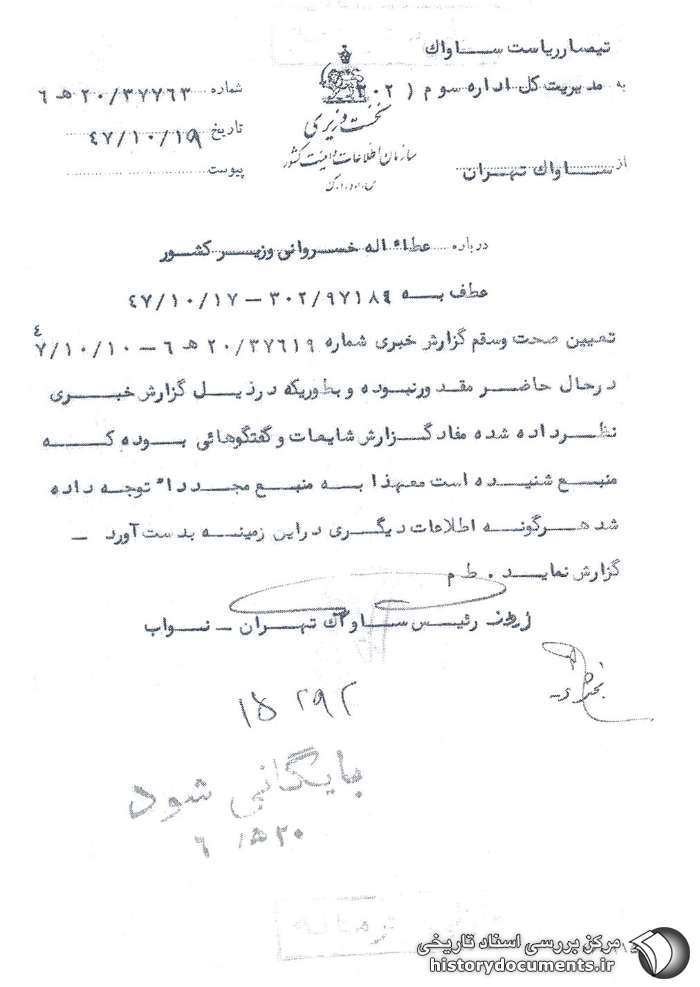 تیمسار ریاست ساواک
به مدیریت کل اداره سوم ( ۳۰۲
شماره ۲۰/۳۷۷۶۳ ه‍ ٦
نخست وزیری
سازمان اطلاعات و امنیت کشور
س.ا.و.ا.ک
تاریخ ٤۷/۱۰/۱۹
از ساواک تهران
پیوست
درباره عطاءاله خسروانی وزیر کشور
عطف به ۳۰۲/۹۷۱۸٤ – ٤۷/۱۰/۱۷
تعیین صحت وسقم گزارش خبری شماره ۲۰/۳۷٦۱۹ ه‍ ٦ – ٤۷/۱۰/۱۰
درحال حاضر مقدور نبوده و بطوریکه در ذیل گزارش خبری
نظر داده شده مفاد گزارش شایعات و گفتگوهائی بوده که
منبع شنیده است معهذا به منبع مجدداً توجه داده
شد هرگونه اطلاعات دیگری دراین زمینه بدست آورد –
گزارش نماید . ط م
رئیس ساواک تهران – نواب
۱۵ ۲۹۲
بایگانی شود
۲۰ ه‍/ ٦
مرکز بررسی اسناد تاریخی
historydocuments.ir